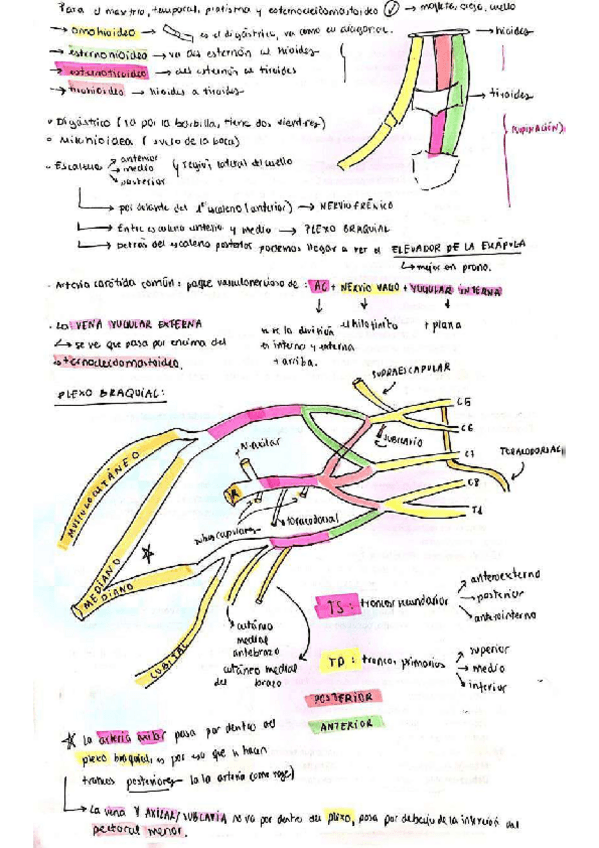 Para el masetro, temporal, platisma y esternocleidomastoideo → mofleta, oreja, cuello
→ omohioideo → es el digástrico, va como en diagonal.
→ esternohioideo → va des esternón al hioides
→ esternotiroideo → del esternón al tiroides
→ tirohioideo → hioides a tiroides
→ hioides
→ tiroides
(SUPINACIÓN)
• Digástrico (va por la barbilla, tiene dos vientres)
• Milohioidea (suelo de la boca)
- Escalenos → anterior
→ medio
→ posterior
región lateral del cuello
→ por delante del 1º escaleno (anterior) → NERVIO FRÉNICO
→ Entre escaleno anterior y medio → PLEXO BRAQUIAL
→ Detrás del escaleno podemos llegar a ver el ELEVADOR DE LA ESCÁPULA
→ mejor en prono.
- Arteria carótida común: paque vasculonervioso de: AC + NERVIO VAGO + YUGULAR INTERNA
↓ ↓ ↓
se ve la división en interna y externa + arriba.
el hilo finito
+ plana
- La VENA YUGULAR EXTERNA
→ se ve que pasa por encima del
esternocleidomastoideo.
PLEXO BRAQUIAL:
SUPRAESCAPULAR
C5
C6
SUBCLAVIO
C7
C8
T1
N. axilar
R
toracodorsal
MUSCULOCUTÁNEO
MEDIANO
MEDIANO
CUBITAL
cutáneo
medial
antebrazo
cutáneo medial
del brazo
TS: troncos secundarios → anteroexterno
→ posterior
→ anterointerno
troncos primarios → superior
→ medio
→ inferior
POSTERIOR
ANTERIOR
La arteria axilar pasa por dentro del
plexo braquial, es por eso que se hacen
troncos posteriores
→ La vena Y AXILAR/SUBCLAVIA no va por dentro del plexo, pasa por debajo de la inserción del
pectoral menor.